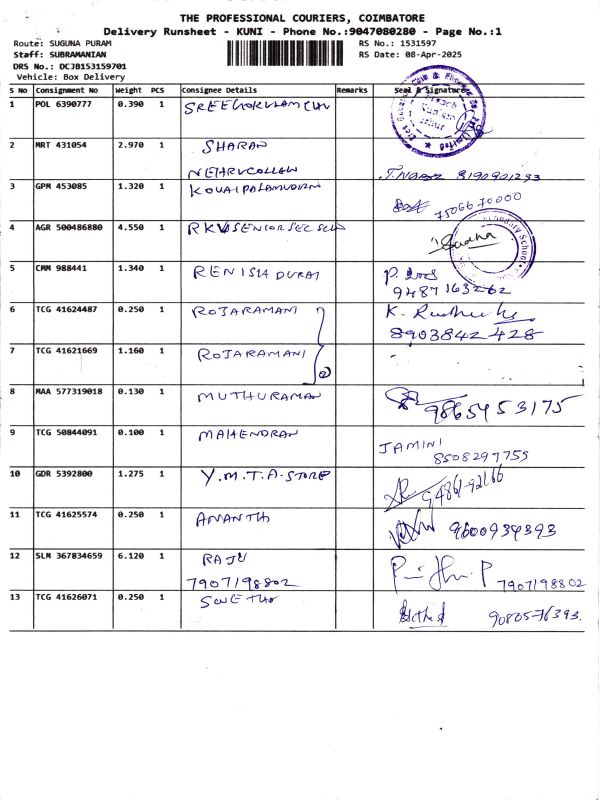 THE PROFESSIONAL COURIERS, COIMBATORE
Delivery Runsheet - KUNI - Phone No.:9047080280 - Page No.:1
Route: SUGUNA PURAM
Staff: SUBRAMANIAN
DRS No.: DCJB153159701
Vehicle: Box Delivery
RS No.: 1531597
RS Date: 08-Apr-2025
S No Consignment No Weight PCS Consignee Details Remarks Seal & Signature
1 POL 6390777 0.390 1
2 MRT 431054 2.970 1 SHARAN
8190901293
3 GPM 453085 1.320 1
7506670000
4 AGR 500486880 4.550 1 RKVSENIOR SEC Sudha
5 CMM 988441 1.340 1 RENISH DURAI
9487163262
6 TCG 41624487 0.250 1 ROJARAMANI K.
8903842428
7 TCG 41621669 1.160 1 ROJARAMANI 2
8 MAA 577319018 0.130 1 MUTHURAMAN 9865453175
9 TCG 50844091 0.100 1 MAHENDRAN JAMINI
8508297755
10 GDR 5392800 1.275 1 Y.M.T.A-STORE 94861-92166
11 TCG 41625574 0.250 1 ANANTH 9600934393
12 SLM 367834659 6.120 1 RAJU
7907198802 7907198802
13 TCG 41626071 0.250 1 SWETHA 9080576393.